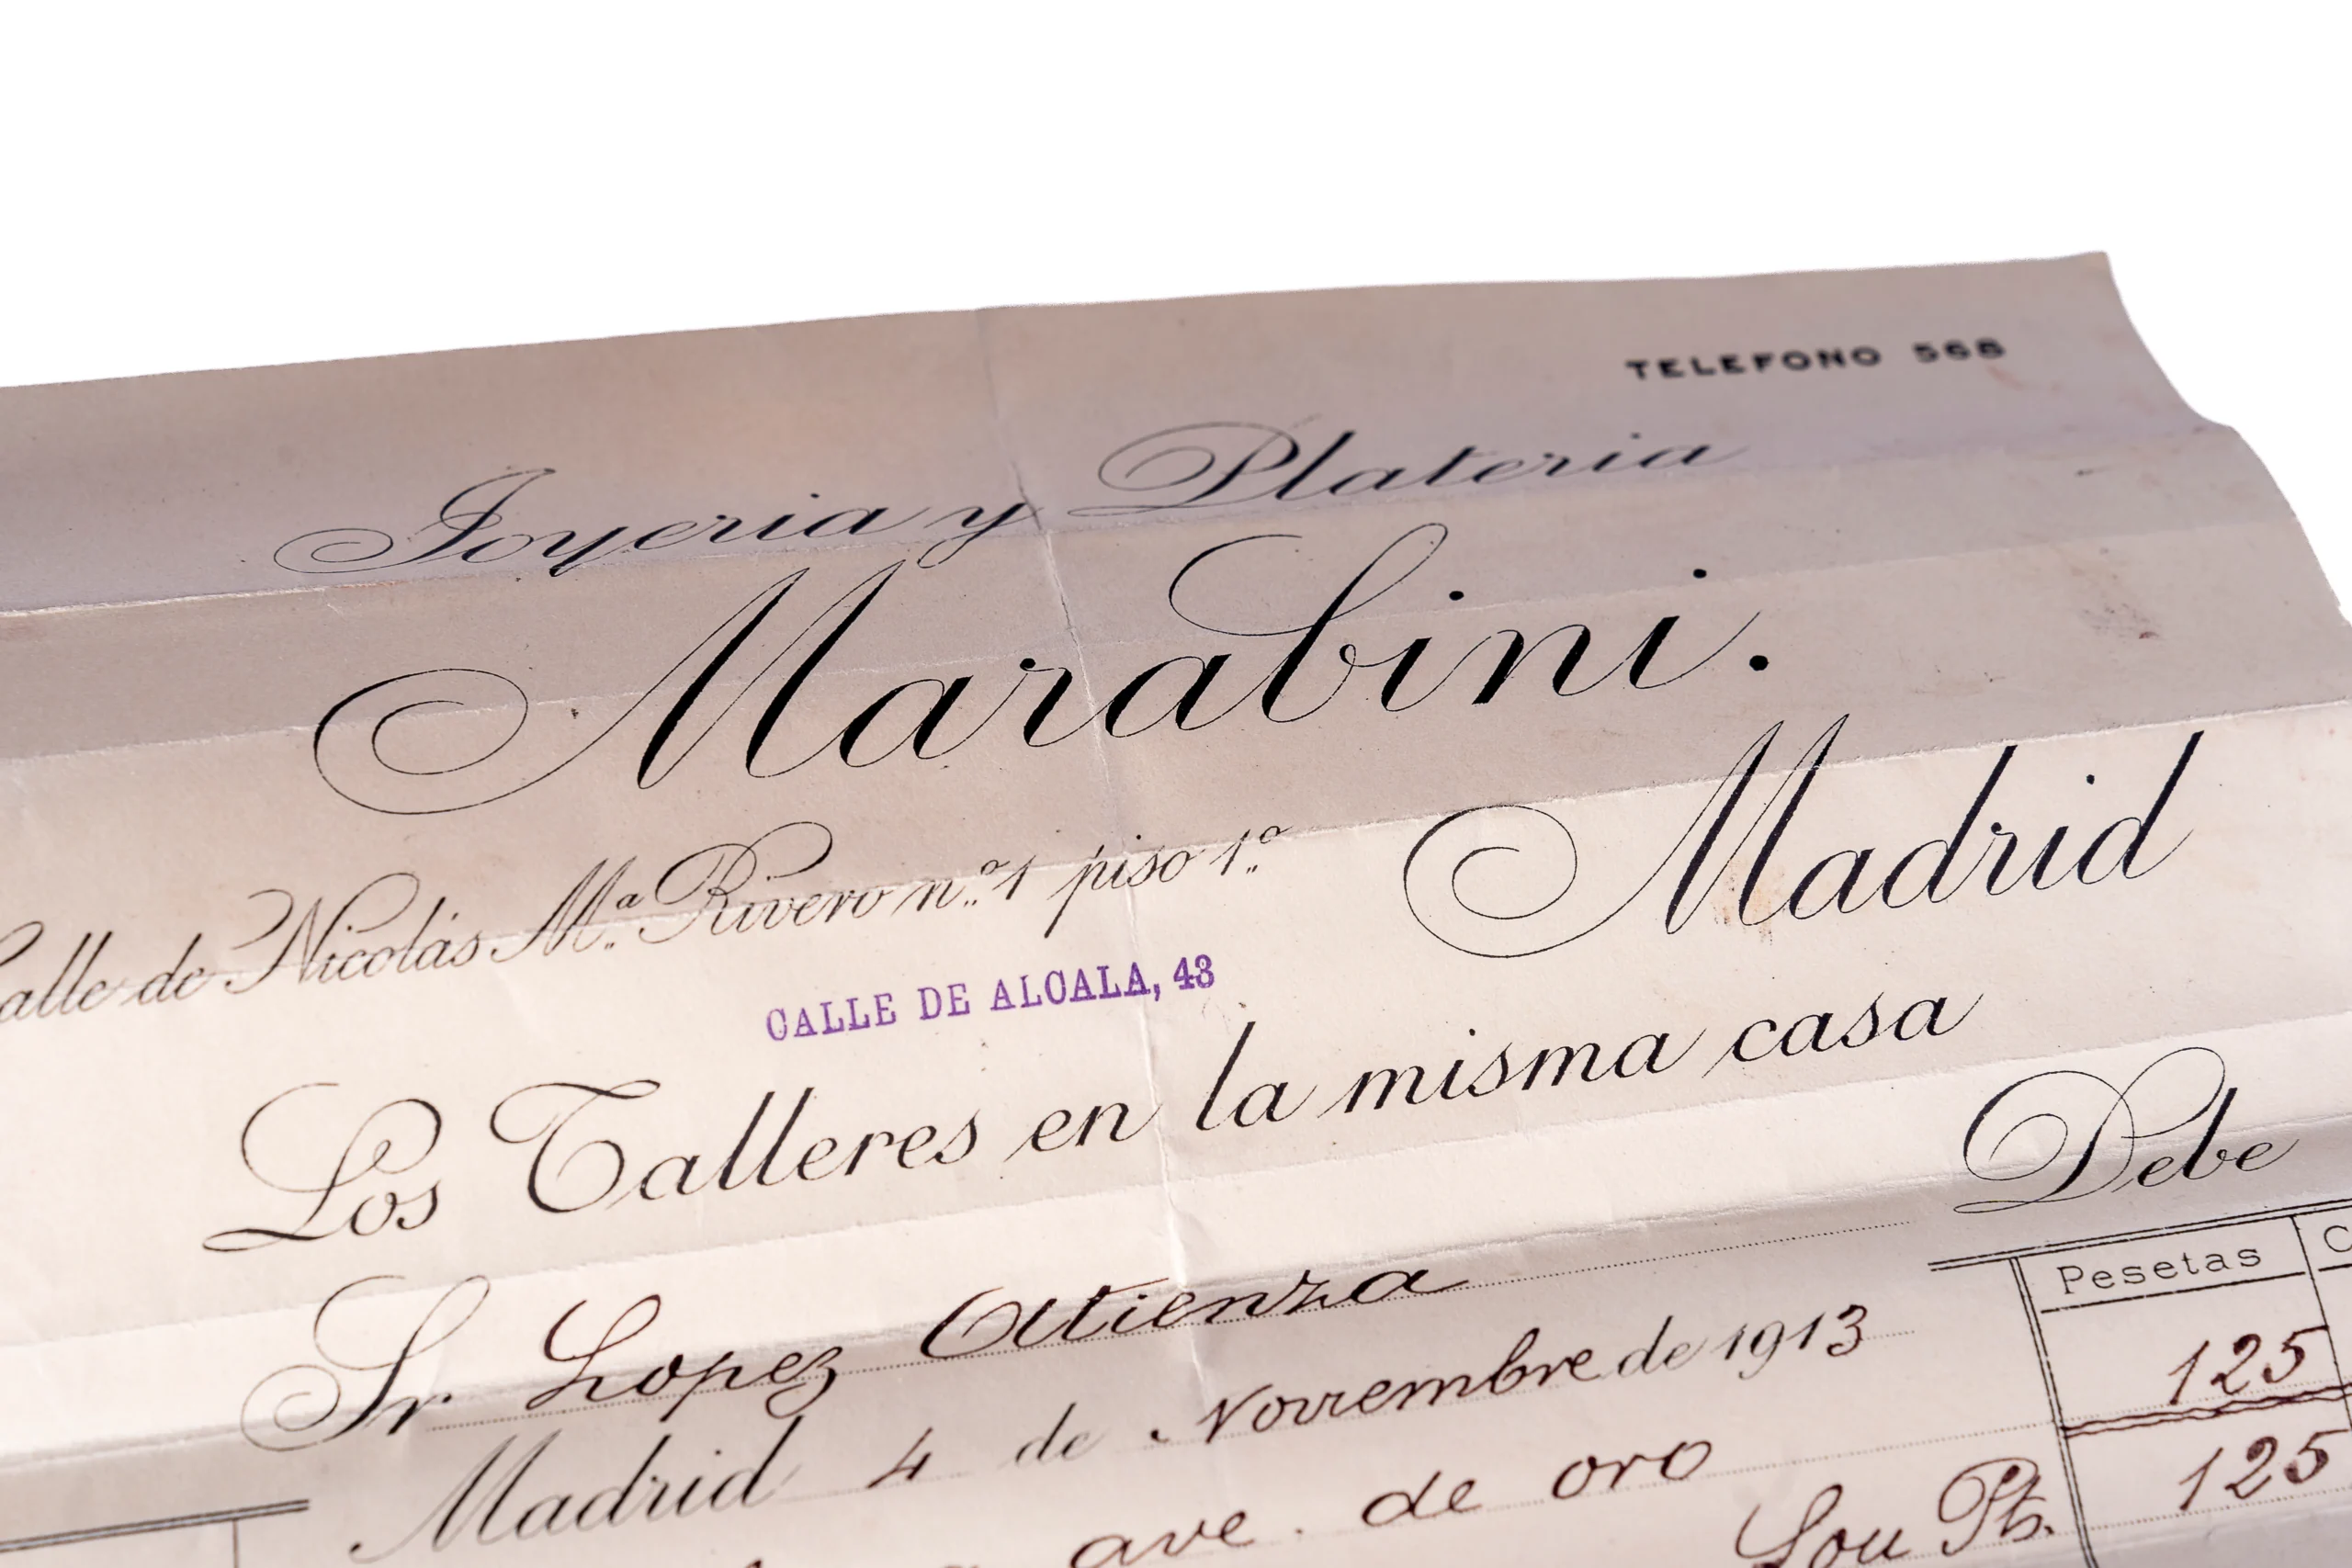 TELEFONO 568
Joyeria y Plateria
Marabini.
Calle de Nicolás Mª. Rivero n.º 1 piso 1.º
Madrid
CALLE DE ALCALA, 43
Los Talleres en la misma casa
Debe
Sr. Lopez Atienza
Pesetas C
Madrid 4 de Noviembre de 1913
125
ave. de oro
Son Pts. 125